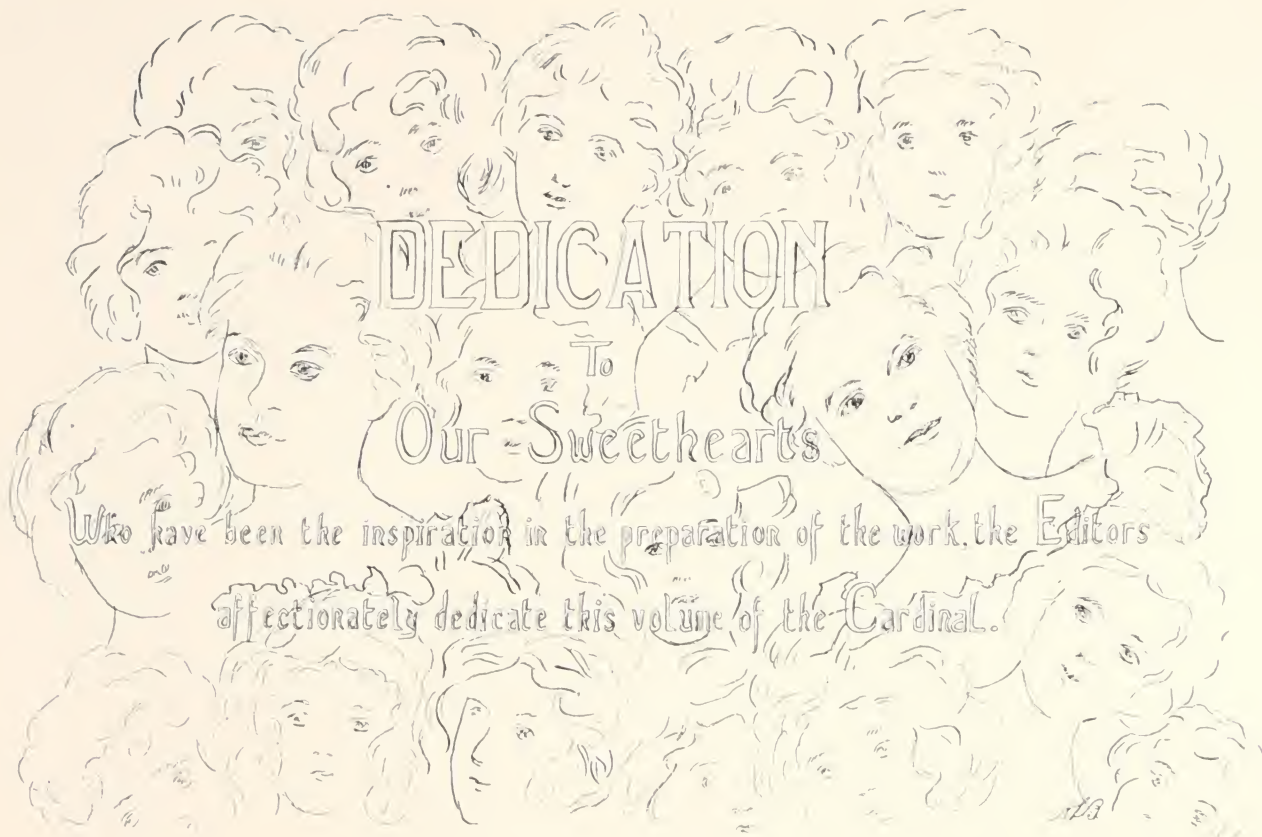 DEDICATION
To
Our Sweethearts
Who have been the inspiration in the preparation of the work, the Editors
affectionately dedicate this volume of the Cardinal.